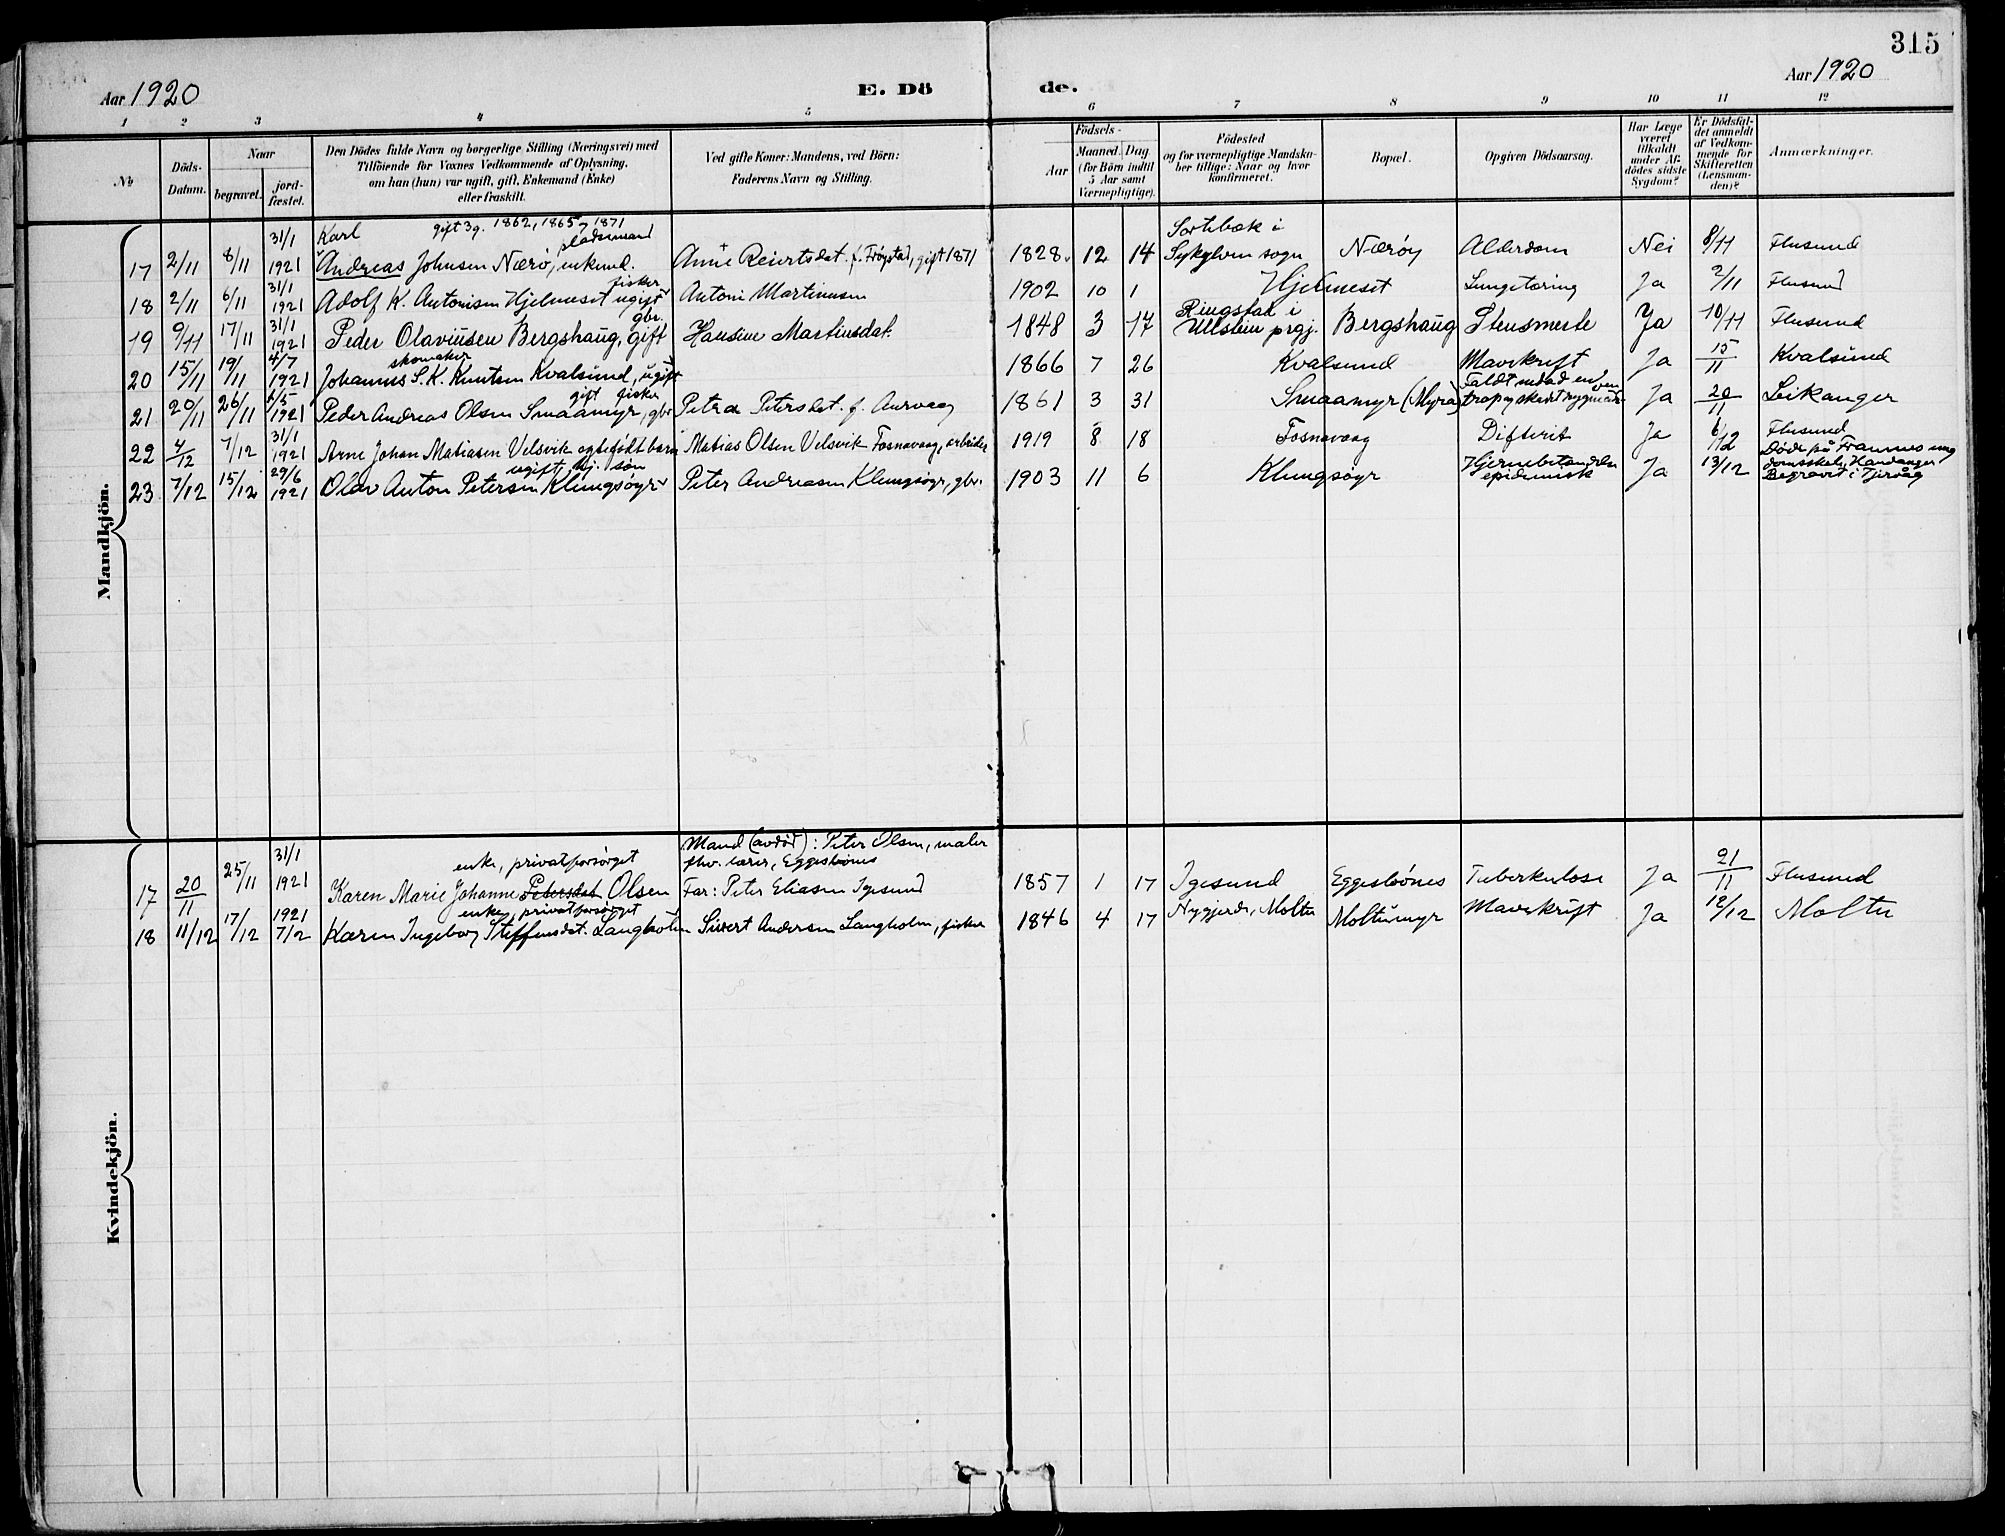 315
Aar 1920
E. Dö de.
Aar 1920
1 2 3 4 5 6 7 8 9 10 11 12
No
Döds-Datum.
Naar
begravet.
jord-fæstet.
Den Dödes fulde Navn og borgerlige Stilling (Næringsvei) med
Tilföiende for Voxnes Vedkommende af Oplysning,
om han (hun) var ugift, gift, Enkemand (Enke)
eller fraskilt.
Ved gifte Koner: Mandens, ved Börn:
Faderens Navn og Stilling.
Födsels-
Aar
Maaned. Dag
(for Börn indtil
5 Aar samt
Værnepligtige).
Födested
og for værnepligtige Mandska-
ber tillige: Naar og hvor
konfirmeret.
Bopæl.
Opgiven Dödsaarsag.
Har Læge
været
tilkaldt
under Af-
dödes sidste
Sygdom?
Er Dödsfal-
det anmeldt
af Vedkom-
mende for
Skifteretten
(Lensman-
den)?
Anmærkninger.
Mandkjön.
31/1 Karl gift 3 g. 1862, 1865, 1871 Sortebæk i
pladsmand
17 2/11 8/11 1921 Andreas Johnsen Nærø, enkemd. Anne Reiertsdat. f. Frøystad, gift 1871 1828 12 14 Sykylven sogn Nærøy Alderdom Nei 8/11 Flusund
31/1 fisker
18 2/11 6/11 1921 Adolf K. Antonisen Hjelmeset ugift Antoni Martinusen 1902 10 1 Hjelmeset Lungetæring Ja 2/11 Flusund
31/1 gbr. Ringstad i
19 9/11 17/11 1921 Peder Olaviusen Bergshaug, gift Hansine Martinusdat. 1848 3 17 Ullstein prgj. Bergshaug Stensmerte Ja 10/11 Flusund
4/7 skomaker
20 15/11 19/11 1921 Johannes S. K. Knutsen Kvalsund, ugift 1866 7 26 Kvalsund Mavekræft Ja 15/11 Kvalsund
2/5 gift fisker Faldt nedad en
21 20/11 26/11 1921 Peder Andreas Olsen Smaamyr, gbr Petra Petersdat. f. Aurvaag 1861 3 31 Smaamyr (Myra) trap og skadet Ja 20/11 Leikanger
31/1 Flusund
22 4/12 7/12 1921 Arne Johan Matiasen Velsvik egtefødt barn Matias Olsen Velsvik Fosnavaag, arbeider 1919 8 18 Fosnavaag Difterit Ja 6/12
29/6 ugift, hj. søn Hjernebetændelse Døde på Frammes ung
23 7/12 15/12 1921 Olav Anton Petersen Klungsøyr Peter Andreasen Klungsøyr, gbr. 1903 11 6 Klungsøyr epidemisk Ja 13/12 domsskole, Hardanger
Begravet i Tjørvåg
Kvindekjön.
Mand (avdød): Peter Olsen, maler
31/1 enke, privat forsørget fhv. lærer, Eggesbønes
17 20/11 25/11 1921 Karen Marie Johanne Petersdat Olsen Far: Peter Eliasen Igesund 1857 1 17 Igesund Eggesbønes Tuberkulose Ja 21/11 Flusund
1921 enke, privat forsørget
18 11/12 17/12 7/2 Karen Ingeborg Steffensdat. Langholm Sivert Andersen Langholm, fisker 1846 4 17 Nygjerde, Moltu Moltumyr Mavekræft Ja 12/12 Moltu